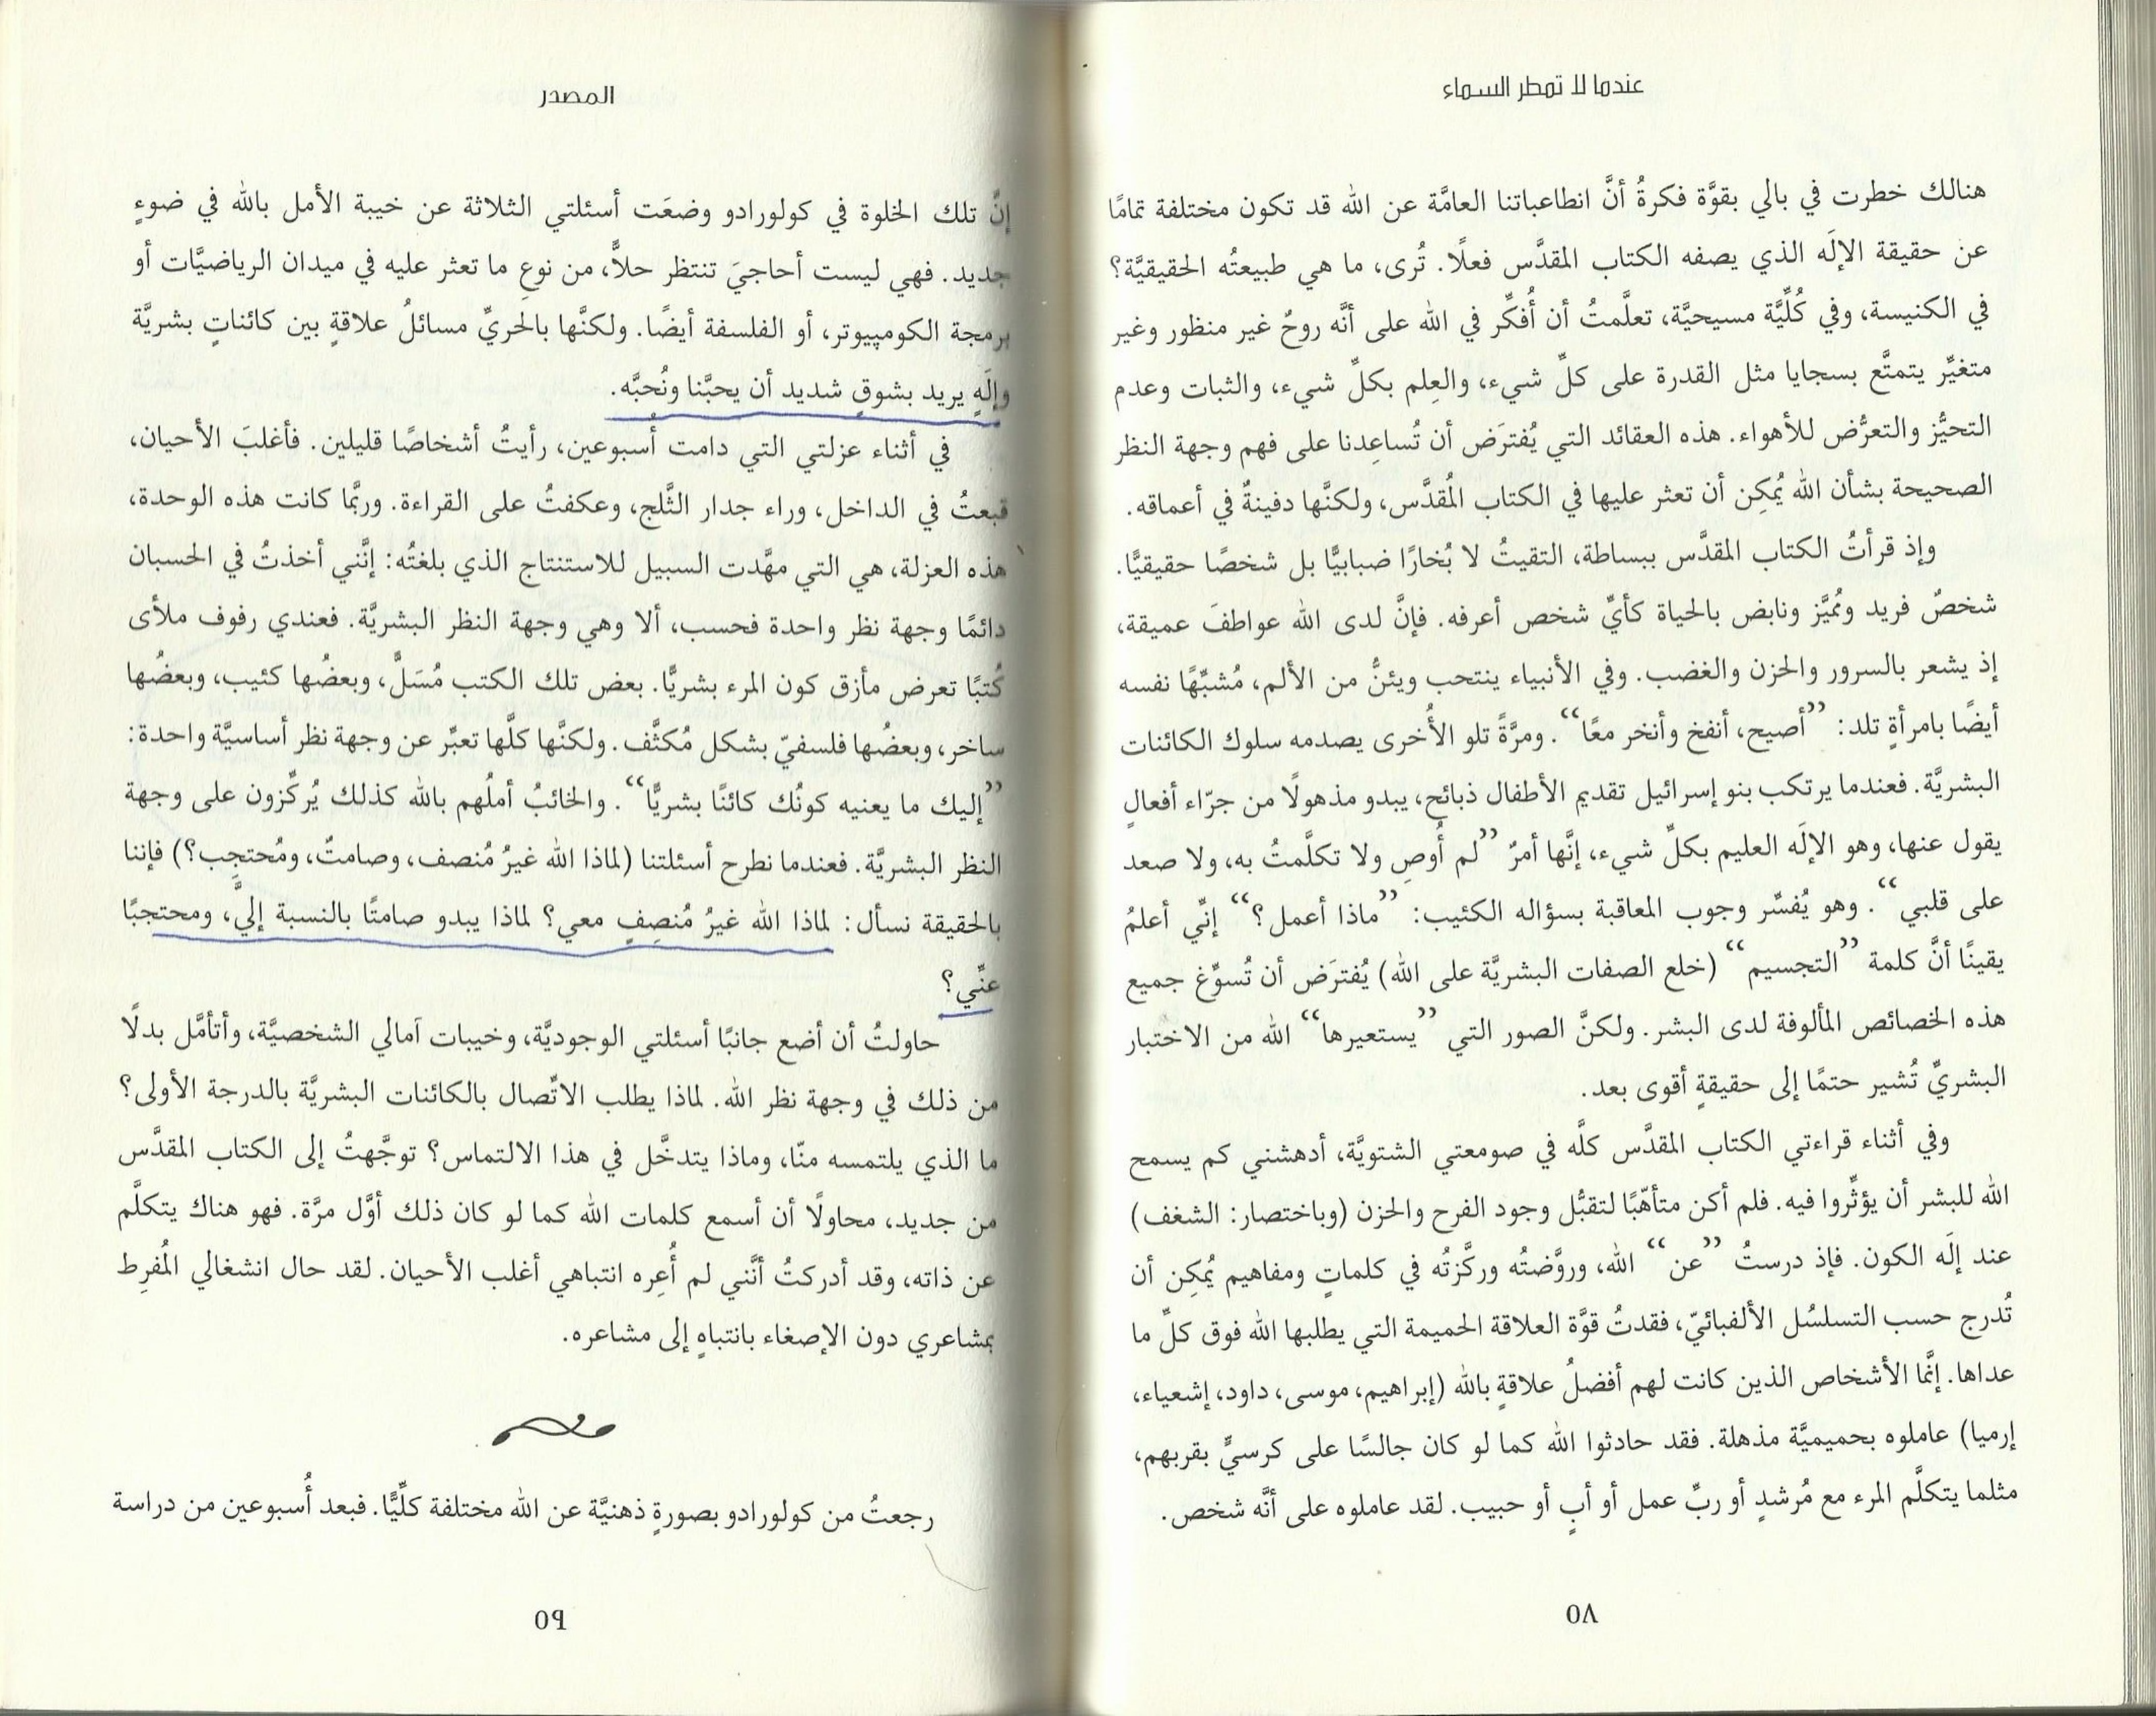 عندما لا تمطر السماء
هنالك خطرت في بالي بقوَّة فكرةُ أنَّ انطاعباتنا العامَّة عن الله قد تكون مختلفة تمامًا
عن حقيقة الإلَه الذي يصفه الكتاب المقدَّس فعلًا. تُرى، ما هي طبيعتُه الحقيقيَّة؟
في الكنيسة، وفي كُلِّيَّة مسيحيَّة، تعلَّمتُ أن أُفكِّر في الله على أنَّه روحٌ غير منظور وغير
متغيِّر يتمتَّع بسجايا مثل القدرة على كلِّ شيء، والعِلم بكلِّ شيء، والثبات وعدم
التحيُّز والتعرُّض للأهواء. هذه العقائد التي يُفترَض أن تُساعِدنا على فهم وجهة النظر
الصحيحة بشأن الله يُمكِن أن تعثر عليها في الكتاب المُقدَّس، ولكنَّها دفينةٌ في أعماقه.
وإذ قرأتُ الكتاب المقدَّس ببساطة، التقيتُ لا بُخارًا ضبابيًّا بل شخصًا حقيقيًّا.
شخصٌ فريد ومُميَّز ونابض بالحياة كأيِّ شخص أعرفه. فإنَّ لدى الله عواطفَ عميقة،
إذ يشعر بالسرور والحزن والغضب. وفي الأنبياء ينتحب ويئنُّ من الألم، مُشبِّهًا نفسه
أيضًا بامرأةٍ تلد: ”أصيح، أنفخ وأنخر معًا“. ومرَّةً تلو الأُخرى يصدمه سلوك الكائنات
البشريَّة. فعندما يرتكب بنو إسرائيل تقديم الأطفال ذبائح، يبدو مذهولًا من جرّاء أفعالٍ
يقول عنها، وهو الإلَه العليم بكلِّ شيء، إنَّها أمرٌ ”لم أُوصِ ولا تكلَّمتُ به، ولا صعد
على قلبي“. وهو يُفسِّر وجوب المعاقبة بسؤاله الكئيب: ”ماذا أعمل؟“ إنّي أعلمُ
يقينًا أنَّ كلمة ”التجسيم“ (خلع الصفات البشريَّة على الله) يُفترَض أن تُسوِّغ جميع
هذه الخصائص المألوفة لدى البشر. ولكنَّ الصور التي ”يستعيرها“ الله من الاختبار
البشريِّ تُشير حتمًا إلى حقيقةٍ أقوى بعد.
وفي أثناء قراءتي الكتاب المقدَّس كلَّه في صومعتي الشتويَّة، أدهشني كم يسمح
الله للبشر أن يؤثِّروا فيه. فلم أكن متأهّبًا لتقبُّل وجود الفرح والحزن (وباختصار: الشغف)
عند إلَه الكون. فإذ درستُ ”عن“ الله، وروَّضتُه وركَّزتُه في كلماتٍ ومفاهيم يُمكِن أن
تُدرج حسب التسلسُل الألفبائيّ، فقدتُ قوَّة العلاقة الحميمة التي يطلبها الله فوق كلِّ ما
عداها. إنَّما الأشخاص الذين كانت لهم أفضلُ علاقةٍ بالله (إبراهيم، موسى، داود، إشعياء،
إرميا) عاملوه بحميميَّة مذهلة. فقد حادثوا الله كما لو كان جالسًا على كرسيٍّ بقربهم،
مثلما يتكلَّم المرء مع مُرشدٍ أو ربِّ عمل أو أبٍ أو حبيب. لقد عاملوه على أنَّه شخص.
٥٨
المصدر
إنَّ تلك الخلوة في كولورادو وضعَت أسئلتي الثلاثة عن خيبة الأمل بالله في ضوءٍ
جديد. فهي ليست أحاجيَ تنتظر حلاًّ، من نوعِ ما تعثر عليه في ميدان الرياضيَّات أو
برمجة الكومپيوتر، أو الفلسفة أيضًا. ولكنَّها بالحريِّ مسائلُ علاقةٍ بين كائناتٍ بشريَّة
وإلَهٍ يريد بشوقٍ شديد أن يحبَّنا ونُحبَّه.
في أثناء عزلتي التي دامت أُسبوعين، رأيتُ أشخاصًا قليلين. فأغلبَ الأحيان،
قبعتُ في الداخل، وراء جدار الثَّلج، وعكفتُ على القراءة. وربَّما كانت هذه الوحدة،
هذه العزلة، هي التي مهَّدت السبيل للاستنتاج الذي بلغتُه: إنَّني أخذتُ في الحسبان
دائمًا وجهة نظر واحدة فحسب، ألا وهي وجهة النظر البشريَّة. فعندي رفوف ملأى
كُتبًا تعرض مأزق كون المرء بشريًّا. بعض تلك الكتب مُسَلٍّ، وبعضُها كئيب، وبعضُها
ساخر، وبعضُها فلسفيّ بشكل مُكثَّف. ولكنَّها كلَّها تعبِّر عن وجهة نظر أساسيَّة واحدة:
”إليك ما يعنيه كونُك كائنًا بشريًّا“. والخائبُ أملُهم بالله كذلك يُركِّزون على وجهة
النظر البشريَّة. فعندما نطرح أسئلتنا (لماذا الله غيرُ مُنصف، وصامتٌ، ومُحتجِب؟) فإننا
بالحقيقة نسأل: لماذا الله غيرُ مُنصِفٍ معي؟ لماذا يبدو صامتًا بالنسبة إليَّ، ومحتجبًا
عنِّي؟
حاولتُ أن أضع جانبًا أسئلتي الوجوديَّة، وخيبات آمالي الشخصيَّة، وأتأمَّل بدلًا
من ذلك في وجهة نظر الله. لماذا يطلب الاتِّصال بالكائنات البشريَّة بالدرجة الأولى؟
ما الذي يلتمسه منّا، وماذا يتدخَّل في هذا الالتماس؟ توجَّهتُ إلى الكتاب المقدَّس
من جديد، محاولًا أن أسمع كلمات الله كما لو كان ذلك أوَّل مرَّة. فهو هناك يتكلَّم
عن ذاته، وقد أدركتُ أنَّني لم أُعِره انتباهي أغلب الأحيان. لقد حال انشغالي المُفرِط
بمشاعري دون الإصغاء بانتباهٍ إلى مشاعره.
رجعتُ من كولورادو بصورةٍ ذهنيَّة عن الله مختلفة كلِّيًّا. فبعد أُسبوعين من دراسة
٥٩